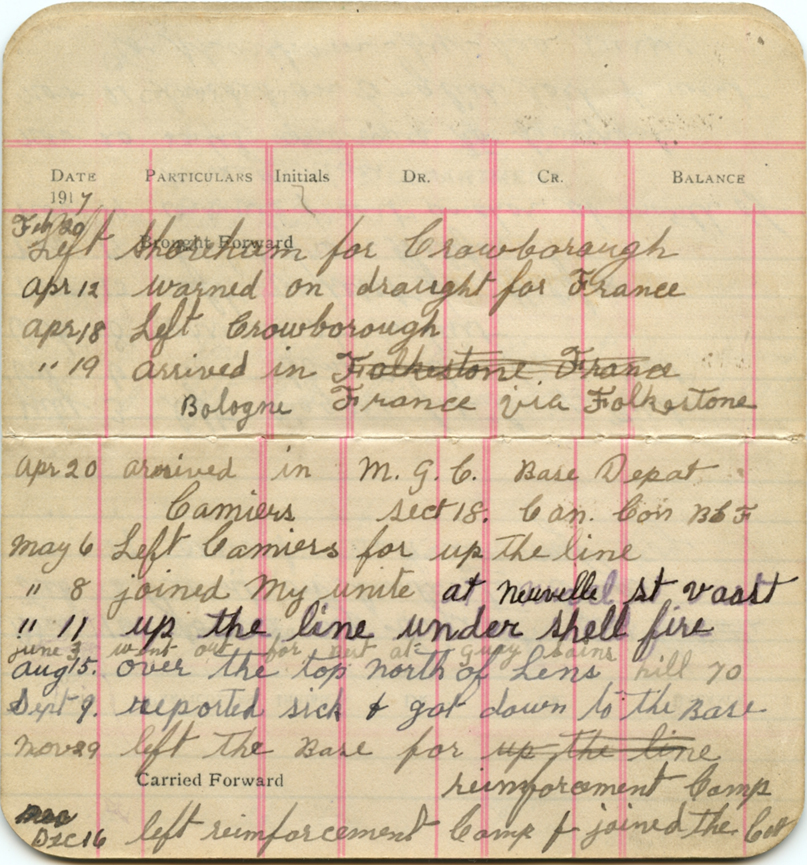 DATE PARTICULARS Initials DR. CR. BALANCE
1917
Feb 20
Brought Forward
Left Shoreham for Crowborough
Apr 12 warned on draught for France
Apr 18 Left Crowborough
" 19 arrived in Folkestone France
Bologne France via Folkestone
Apr 20 arrived in M. G. C. Base Depat
Camiers sect 18. Can. Con BEF
May 6 Left Camiers for up the line
" 8 joined my unite at neuvelle st vaast
" 11 up the line under shell fire
June 3 went out for rest at
Aug 15. over the top north of Lens hill 70
Sept 9. reported sick & got down to the Base
Nov 29 left the Base for up the line
Carried Forward
reinforcement Camp
Dec 16 left reinforcement Camp & joined the